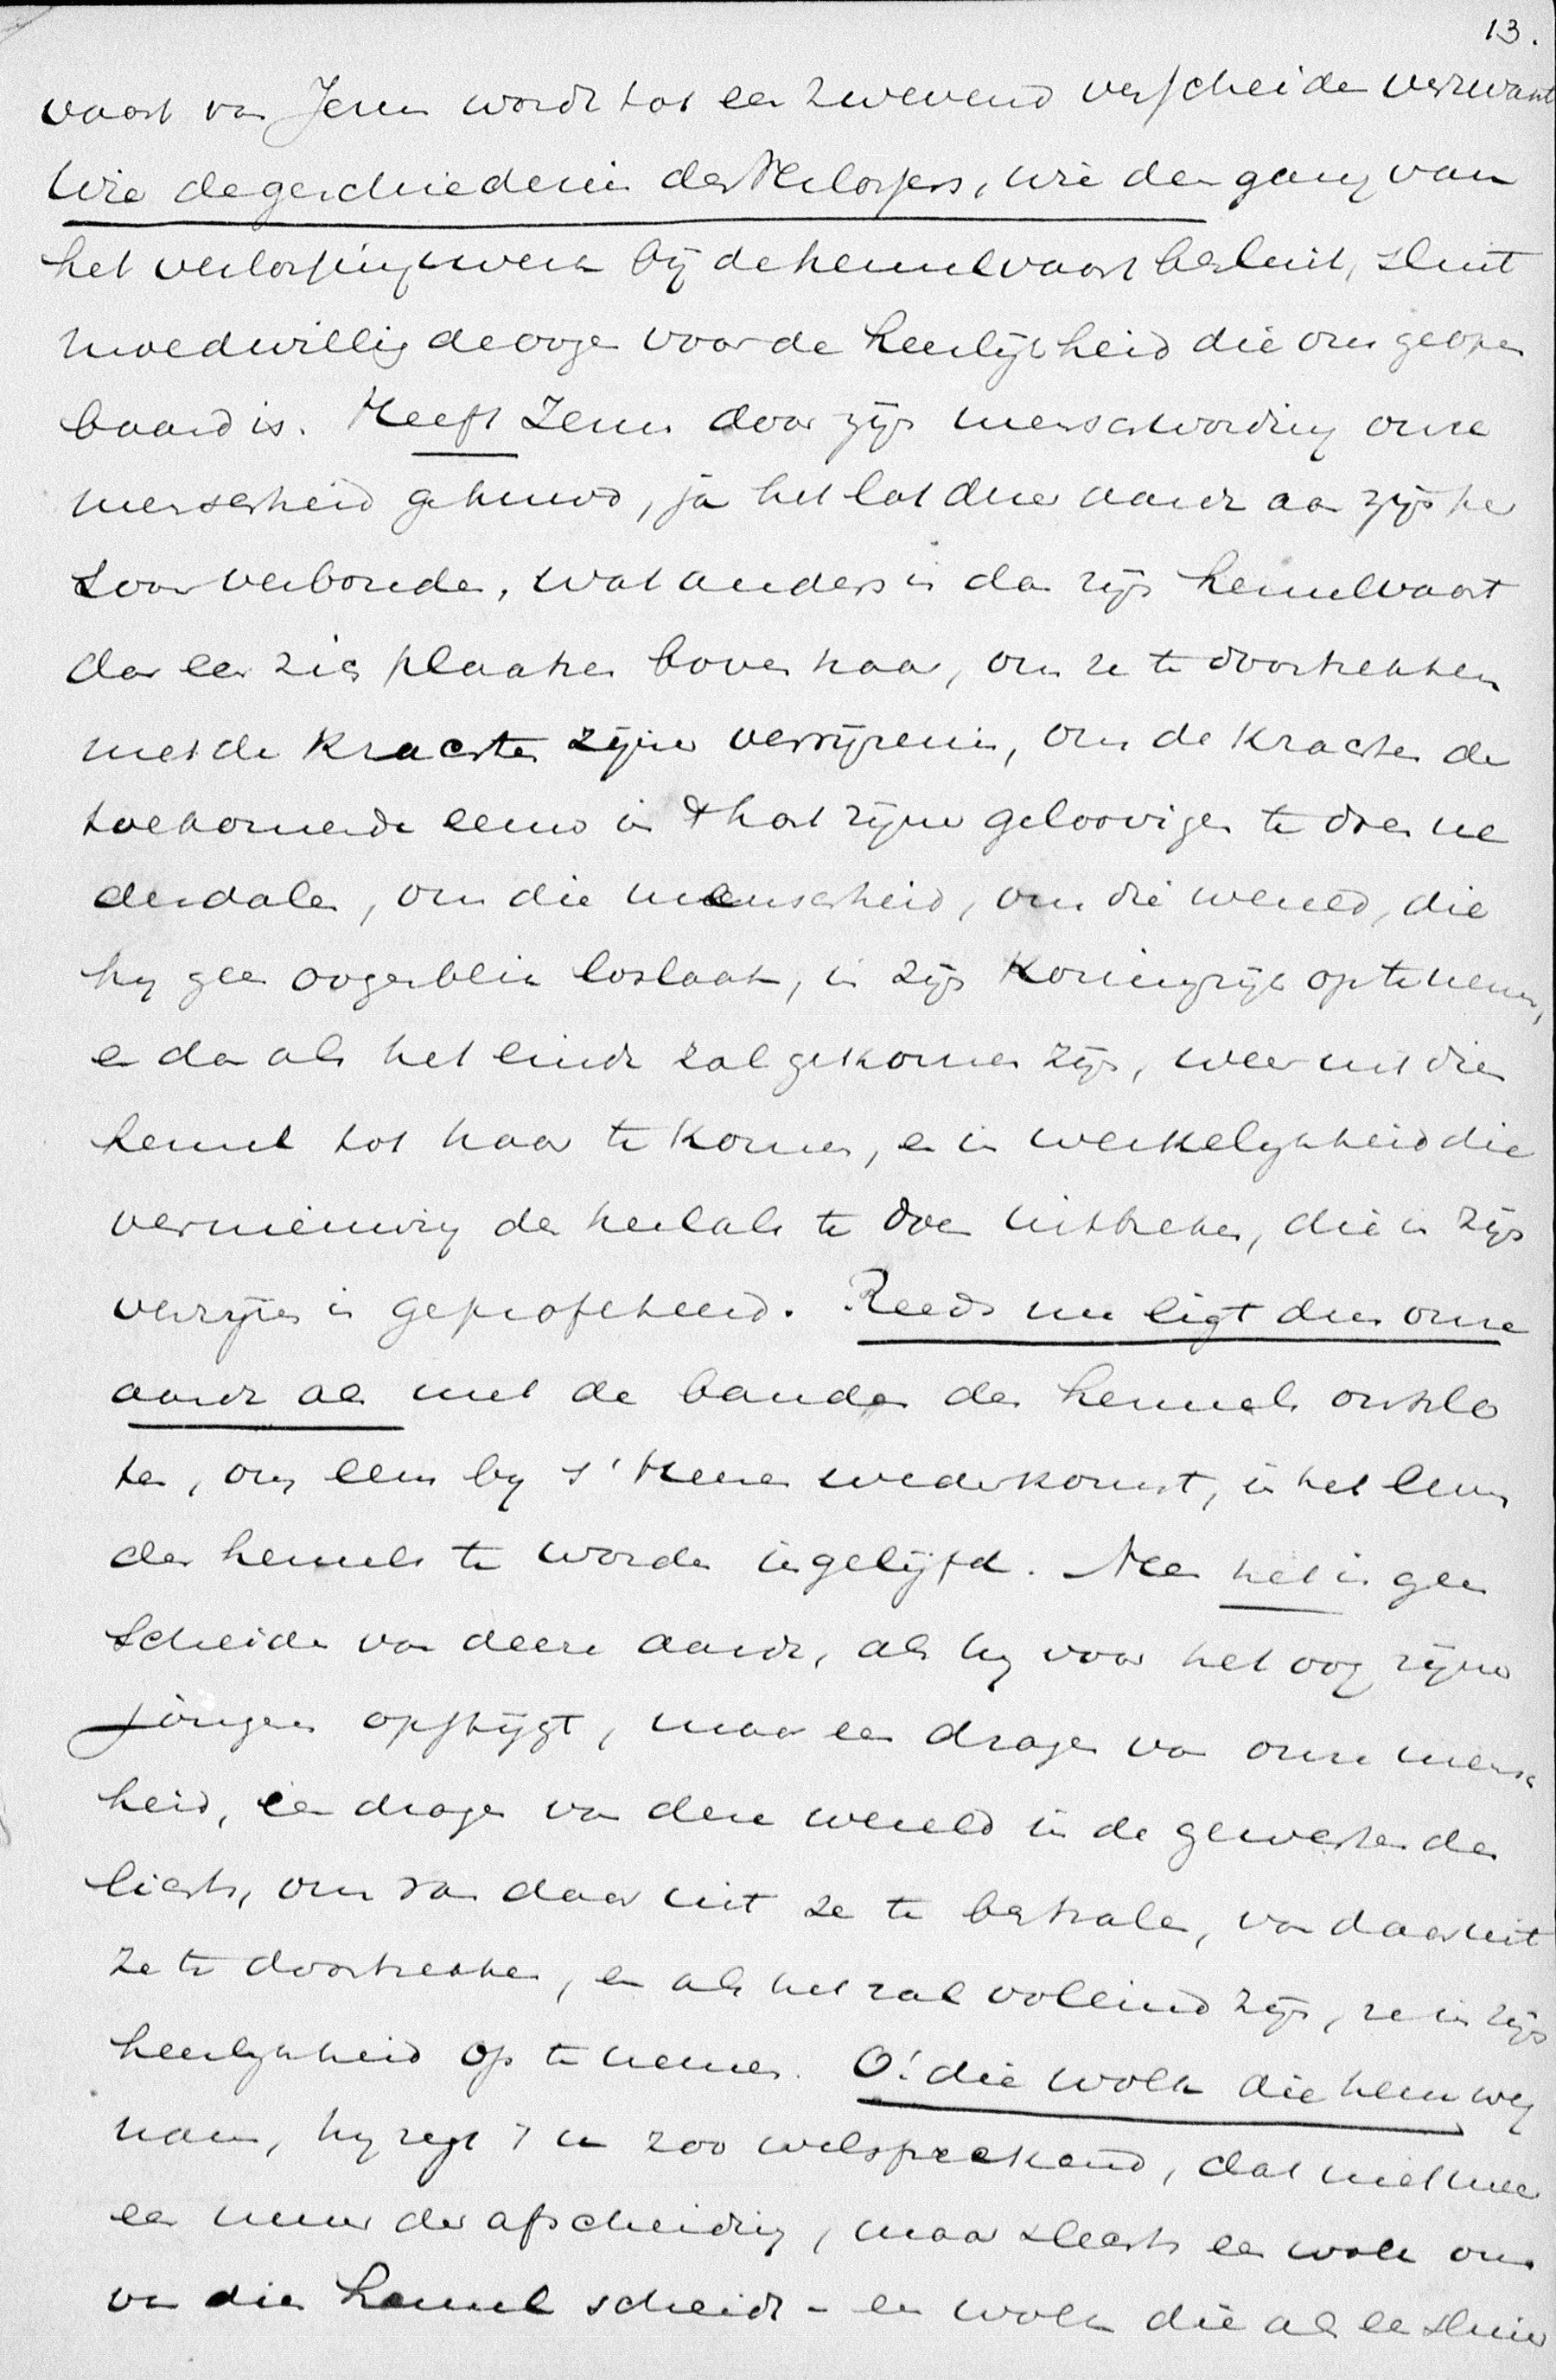 13.
vaart van Jezus wordt tot een zwevend verscheiden verwant
Wie de geschiedenis des Verlossers, wie den gang van
het verlossingswerk bij de hemelvaart besluit, sluit
moedwillig de oogen voor de heerlijkheid die ons geopen
baard is. Heeft Jezus door zijn menschwording onze
menscheid gehuwd, ja het lot dezer aarde aan zijn per
soon verbonden, wat anders is dan zijn hemelvaart
dan een zich plaatsen boven haar, om ze te doortrekken
met de krachten zijner verrijzenis, om de krachten der
toekomende eeuw in 't hart zijner geloovigen te doen ne
derdalen, om die menscheid, om die wereld, die
hy geen oogenblik loslaat, in zijn Koningrijk op te nemen,
en dan als het einde zal gekomen zijn, weer uit dien
hemel tot haar te komen, en in werkelykheid die
vernieuwing des heelals te doen uitbreken, die in zijn
verrijzen is geprofeteerd. Reeds nu ligt dus onze
aarde als met de banden des hemels omslo
ten, om eens by s' Heeren wederkomst, in het leven
des hemels te worden ingelijfd. Neen het is geen
scheiden van deeze aarde, als hy voor het oog zijner
jongeren opstijgt, maar een dragen van onze mensch
heid, een dragen van deze wereld in de gewesten des
lichts, om van daar uit ze te bestralen, van daar uit
ze te doortrekken, en als het zal voleind zijn, ze in zijn
heerlykheid op te nemen. O! die wolk die hem weg
nam, hy zegt 't u zoo welsprekend, dat niet meer
een muur der afscheiding, maar slechts een wolk ons
van dien hemel scheidt – een wolk die als een sluier